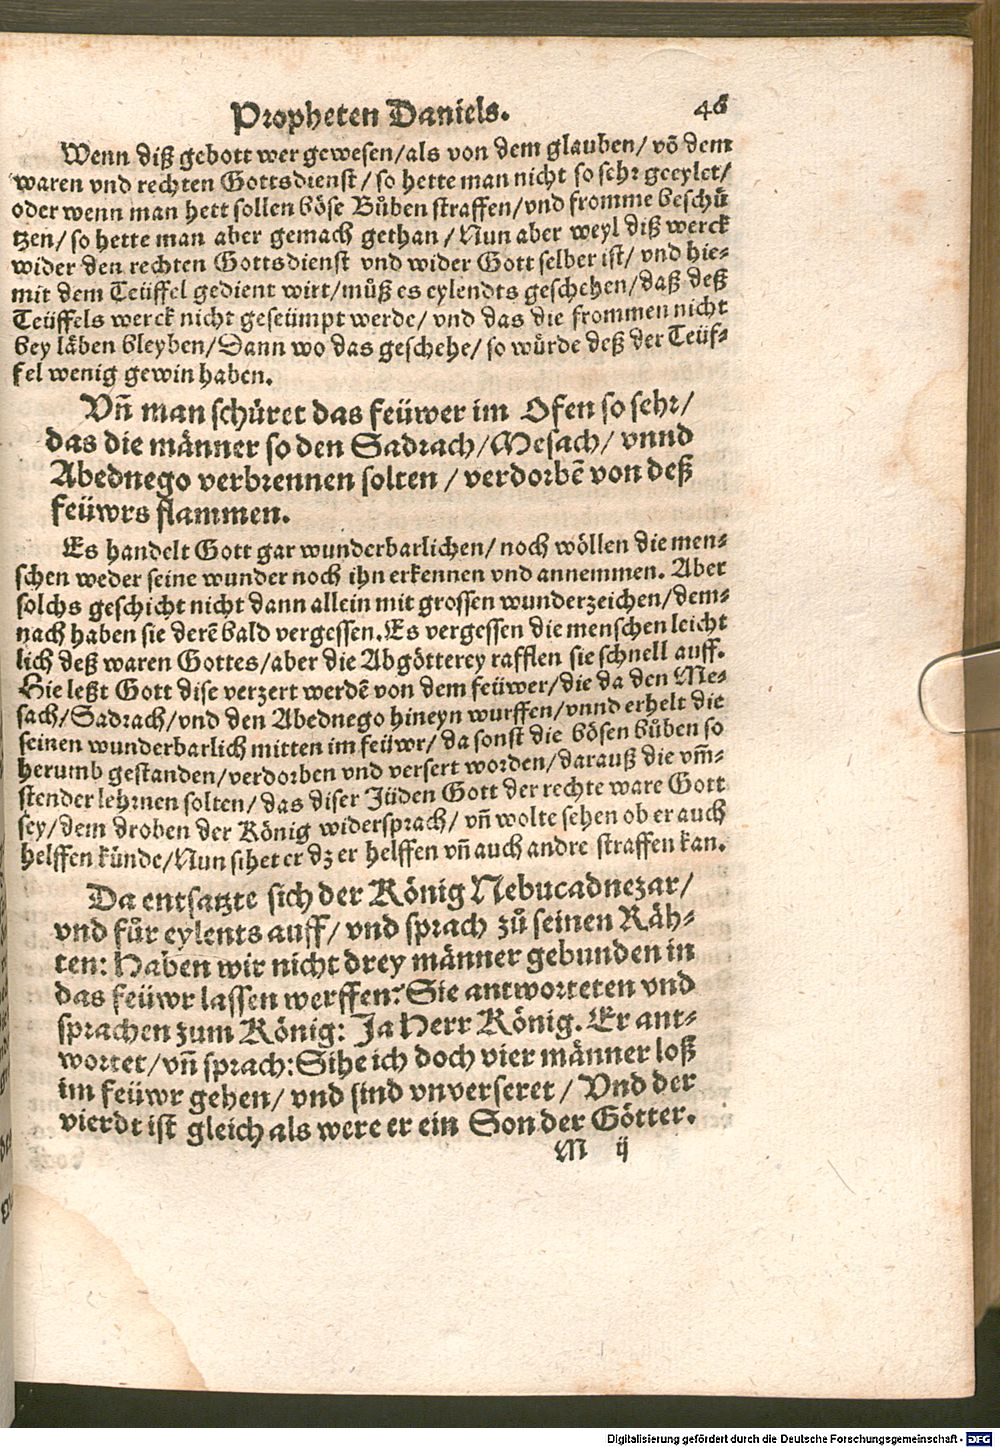 Propheten Daniels. 46
Wenn diß gebott wer gewesen/als von dem glauben/ võ dem
waren vnd rechten Gottsdienst/ so hette man nicht so sehr geeylet/
oder wenn man hett sollen böse Bůben straffen/vnd fromme beschü
tzen/ so hette man aber gemach gethan/ Nun aber weyl diß werck
wider den rechten Gottsdienst vnd wider Gott selber ist/ vnd hie-
mit dem Teüffel gedient wirt/müß es eylendts geschehen/daß deß
Teüffels werck nicht geseümpt werde/ vnd das die frommen nicht
bey läben bleyben/Dann wo das geschehe/ so würde deß der Teüf-
fel wenig gewin haben.
Vñ man schüret das feüwer im Ofen so sehr/
das die männer so den Sadrach/Mesach/ vnnd
Abednego verbrennen solten/ verdorbẽ von deß
feüwrs flammen.
Es handelt Gott gar wunderbarlichen/ noch wöllen die men-
schen weder seine wunder noch ihn erkennen vnd annemmen. Aber
solchs geschicht nicht dann allein mit grossen wunderzeichen/dem-
nach haben sie derẽ bald vergessen. Es vergessen die menschen leicht
lich deß waren Gottes/aber die Abgötterey rafflen sie schnell auff.
Hie leßt Gott dise verzert werdẽ von dem feüwer/die da den Me-
sach/Sadrach/vnd den Abednego hineyn wurffen/vnnd erhelt die
seinen wunderbarlich mitten im feüwr/ da sonst die bösen bůben so
herumb gestanden/verdorben vnd versert worden/darauß die vm̃-
stender lehrnen solten/ das diser Jüden Gott der rechte ware Gott
sey/dem droben der König widersprach/ vñ wolte sehen ob er auch
helffen künde/Nun sihet er dz er helffen vñ auch andre straffen kan.
Da entsatzte sich der König Nebucadnezar/
vnd fůr eylents auff/ vnd sprach zů seinen Räh-
ten: Haben wir nicht drey männer gebunden in
das feüwr lassen werffen? Sie antworteten vnd
sprachen zum König: Ja Herr König. Er ant-
wortet/vñ sprach: Sihe ich doch vier männer loß
im feüwr gehen/ vnd sind vnverseret/ Vnd der
vierdt ist gleich als were er ein Son der Götter.
M ij
Digitalisierung gefördert durch die Deutsche Forschungsgemeinschaft - DFG